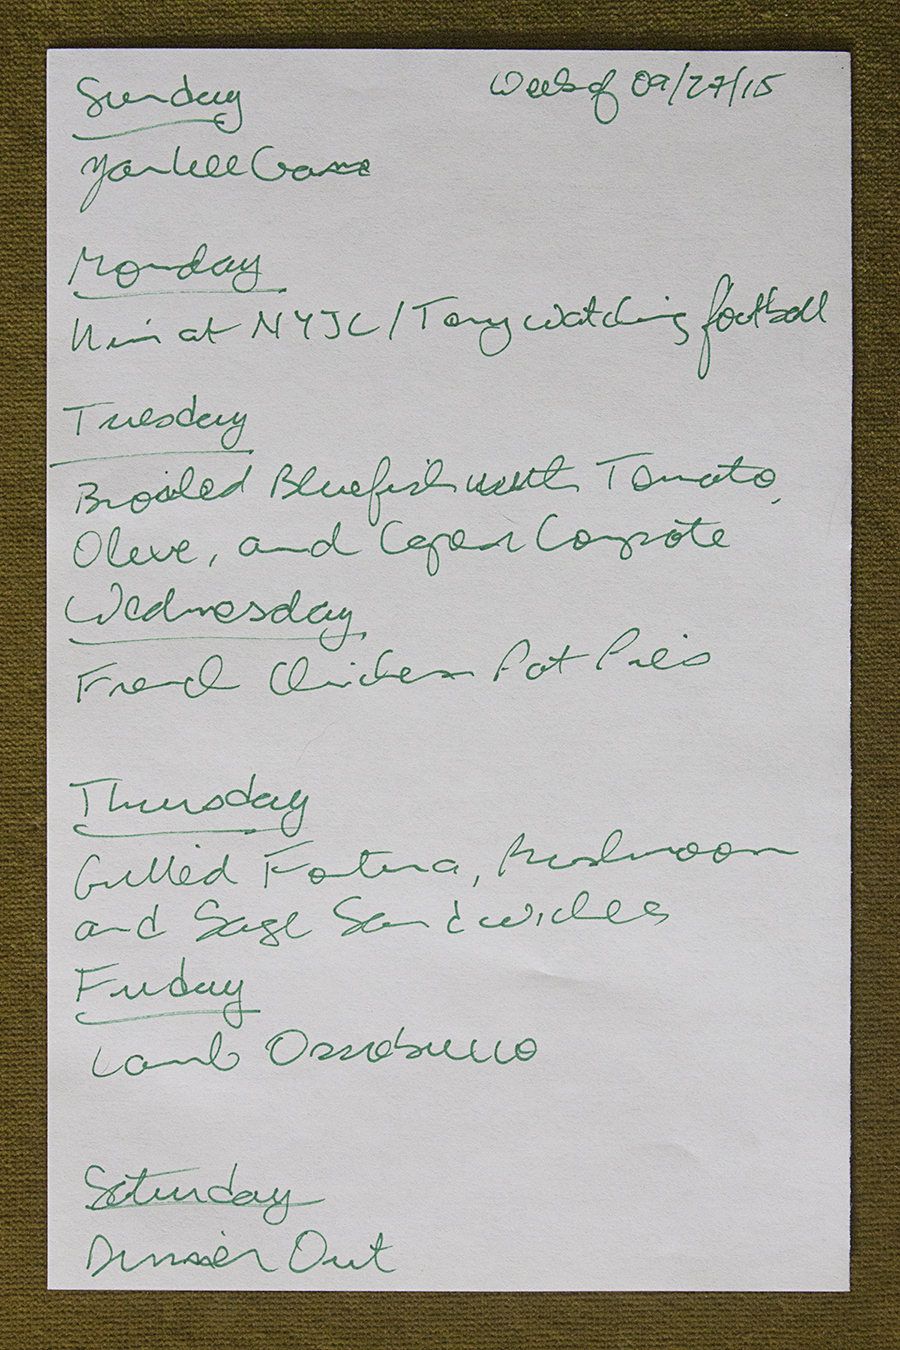 Week of 09/27/15
Sunday
Yankee Game
Monday
at NYJC / Tony watching football
Tuesday
Broiled Bluefish with Tomato,
Olive, and Caper Compote
Wednesday
French Chicken Pot Pies
Thursday
Grilled Fontina, Mushroom
and Sage Sandwiches
Friday
Lamb Ossobuco
Saturday
Dinner Out